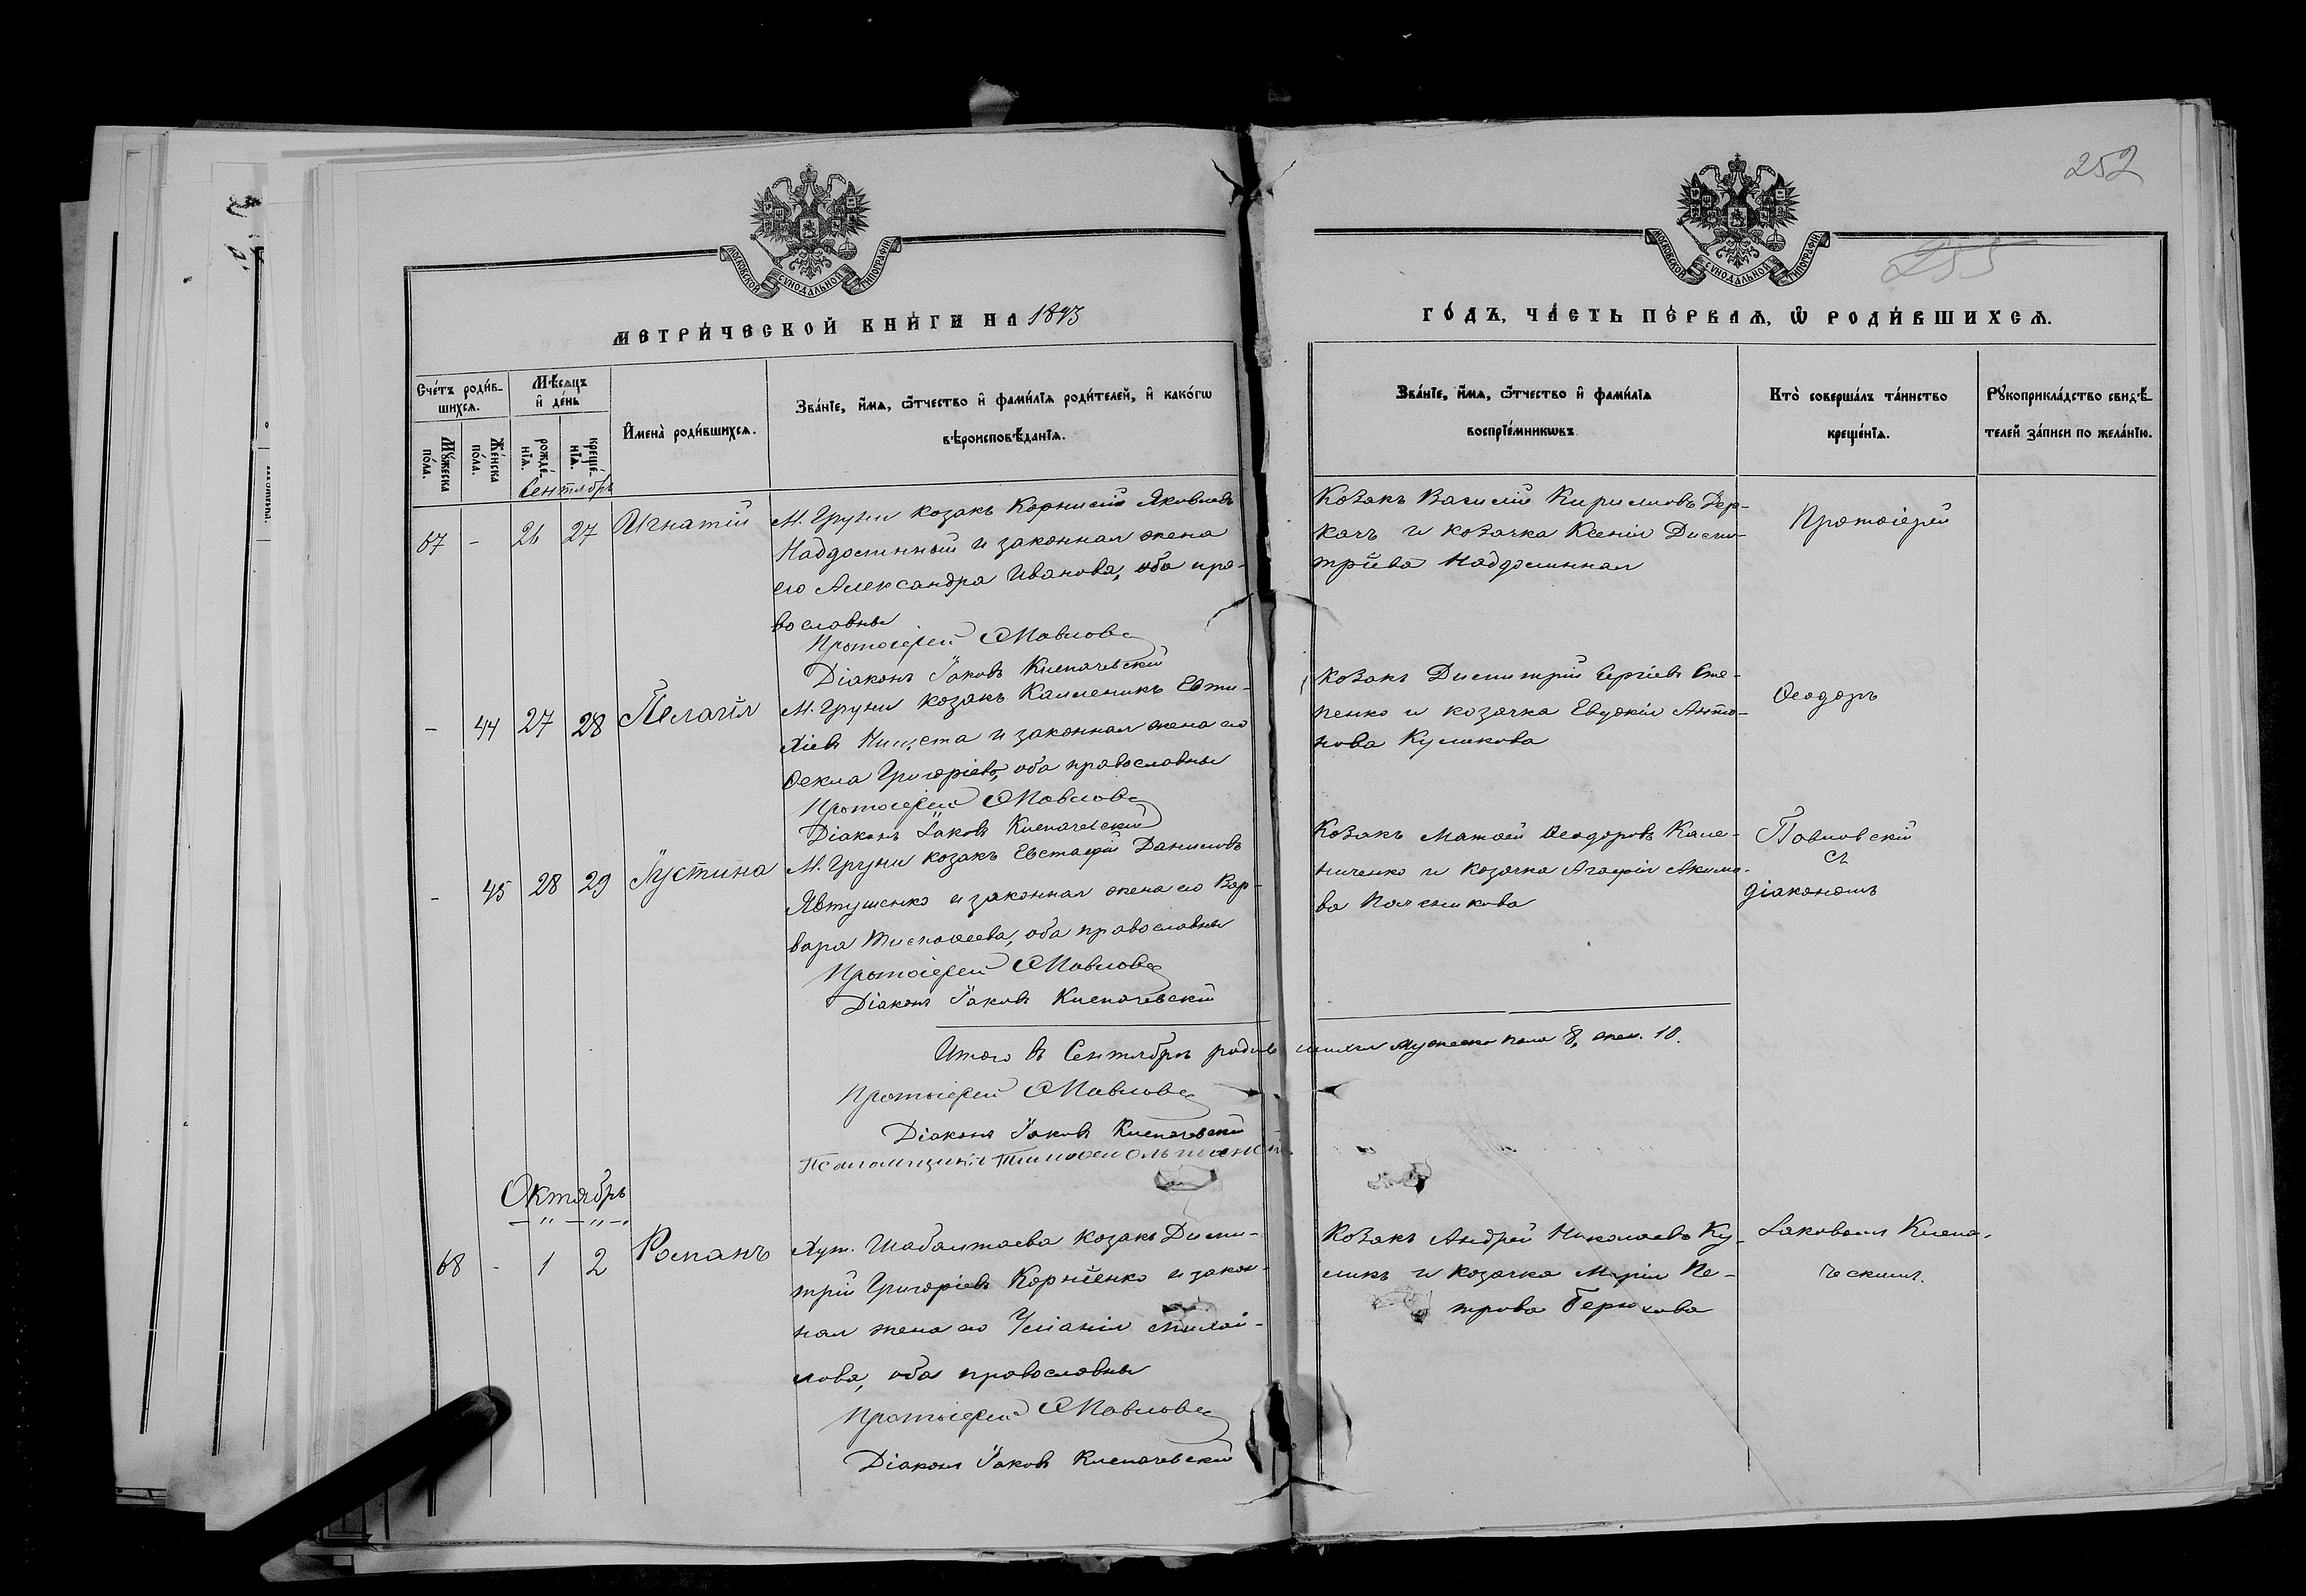 252
255
МОСКОВСКОЙ СѴНОДАЛЬНОЙ ТИПОГРАФІИ
МОСКОВСКОЙ СѴНОДАЛЬНОЙ ТИПОГРАФІИ
МЕТРИ́ЧЕСКОЙ КНИ́ГИ НА 1893
ГО́ДЪ, ЧА́СТЬ ПЕ́РВАѦ, Ѡ҆ РОДИ́ВШИХСѦ.
Сче́тъ роди́в-
шихсѧ.
Мѣ́сѧцъ
и҆ де́нь
И҆мена̀ роди́вшихсѧ.
Зва́нїе, и҆́мѧ, ѻ҆́тчество и҆ фами́лїѧ роди́телей, и҆ како́гѡ
вѣроисповѣ́данїѧ.
Зва́нїе, и҆́мѧ, ѻ҆́тчество и҆ фами́лїѧ
воспрїе́мникѡвъ
Кто̀ соверша́лъ та́инство
креще́нїѧ.
Рꙋкоприкла́дство свидѣ́-
телей за́писи по жела́нїю.
Мꙋ́жеска
по́ла.
Же́нска
по́ла.
рожде́-
нїѧ.
креще́-
нїѧ.
Сентябрь
67 - 26 27 Игнатій
М. Груни козакъ Корнилій Яковлевъ
Наддолинный и законная жена
его Александра Иванова, оба пра-
вославны
Протоіерей Ѳ Павловс
Діаконъ Іаковъ Клепачевскій
Козакъ Василій Кирилловъ Дер-
качъ и козачка Ксенія Дими-
тріева Наддолинная
Протоіерей
- 44 27 28 Пелагія
М. Груни козакъ Каллиникъ Евти-
хіевъ Нищета и законная жена его
Ѳекла Григоріева, оба православны
Протоіерей Ѳ Павловс
Діаконъ Іаковъ Клепачевскій
Козакъ Димитрій Сергіевъ Сте-
пенко и козачка Евдокія Анто-
нова Куликова
Ѳеодоръ
- 45 28 29 Іустина
М. Груни козакъ Евстафій Даниловъ
Явтушенко и законная жена его Вар-
вара Тимоѳеева, оба православны
Протоіерей Ѳ Павловс
Діаконъ Іаковъ Клепачевскій
Козакъ Матѳей Ѳеодоровъ Кале-
ниченко и козачка Агафія Акимо-
ва
Павловскій
съ
діакономъ
Итого въ Сентябрѣ родившихся мужеска пола 8, жен. 10.
Протоіерей Ѳ Павловс
Діаконъ Іаковъ Клепачевскій
Псаломщикъ Тимоѳей
Октябрь
68 - 1 2 Романъ
Хут. Шабалтаева козакъ Дими-
трій Григоріевъ Корніенко и закон-
ная жена его Уліанія Михай-
лова, оба православны
Протоіерей Ѳ Павловс
Діаконъ Іаковъ Клепачевскій
Козакъ Андрей Николаевъ Ку-
ликъ и козачка Марія Пе-
трова Бирюкова
Іаковомъ Клепа-
ческимъ.